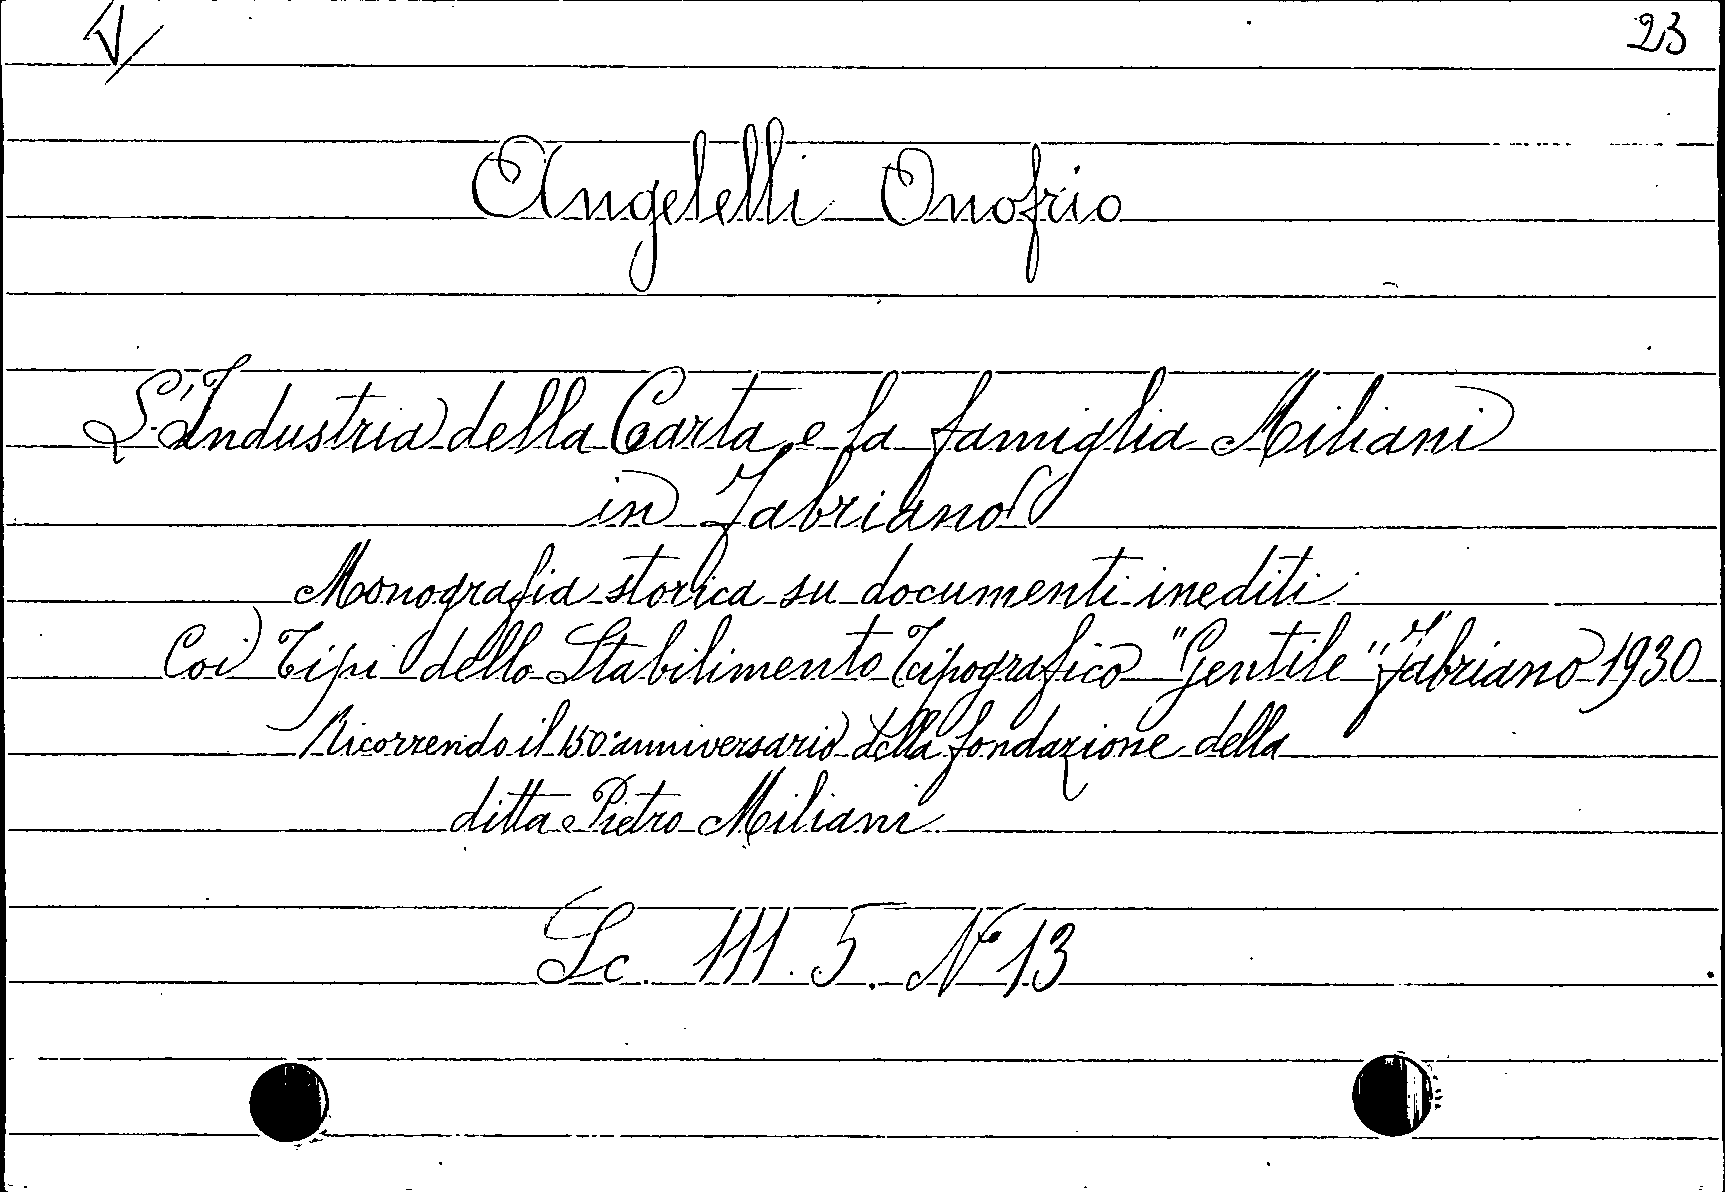 23
Angelelli Onofrio
L'Industria della Carta e la famiglia Miliani
in Fabriano
Monografia storica su documenti inediti
Coi Tipi dello Stabilimento Tipografico "Gentile" Fabriano 1930
Ricorrendo il 150° anniversario della fondazione della
ditta Pietro Miliani
Sc. 111. 5. N° 13